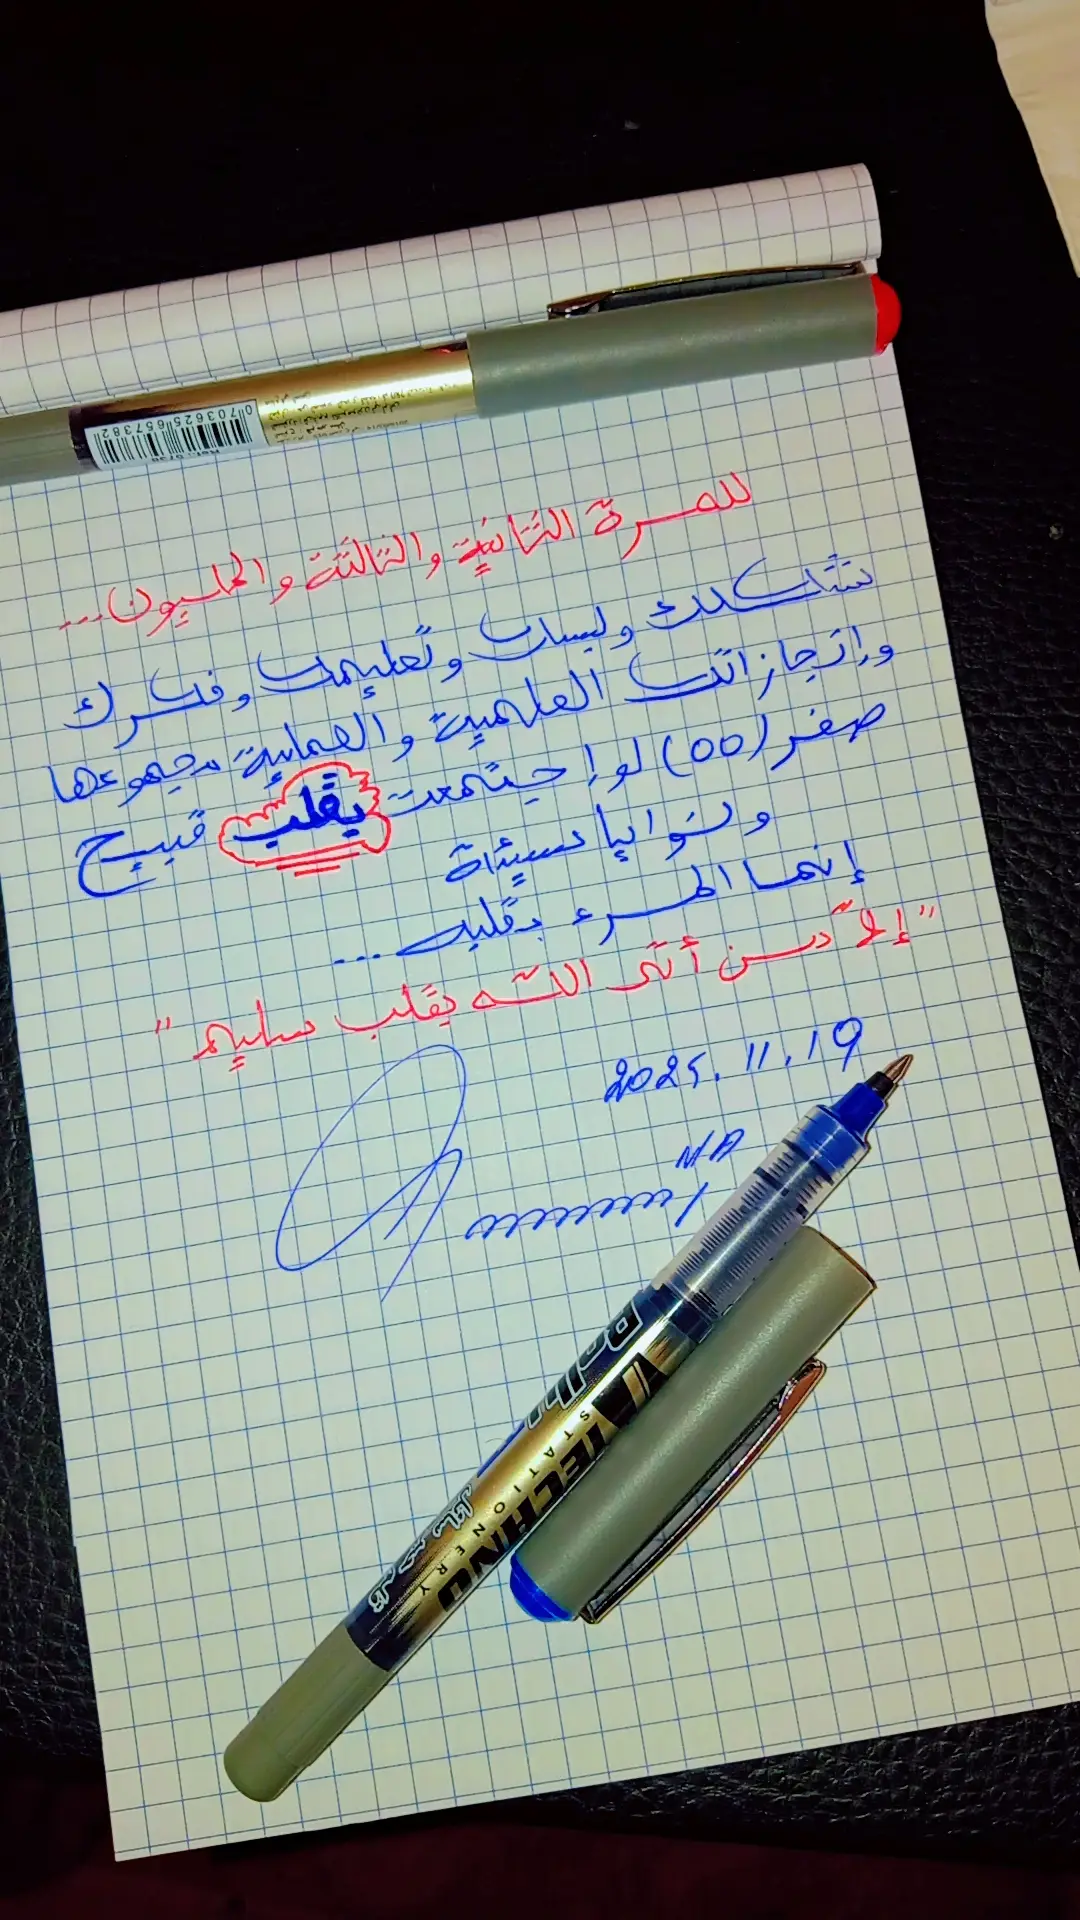 0 703625 657382
للمرة الثانية والثالثة والمليون...
شكلك ولبسك وتعليمك وفكرك
وإنجازاتك العلمية والعملية مجموعها
صفر (00) لو إجتمعت بقلب قبيح
ونوايا سيئة
إنما المرء بقلبه...
"إلا من أتى الله بقلب سليم"
2025.11.19
MA
Roller
TECHNO
STATIONERY
قلم حبر سائل